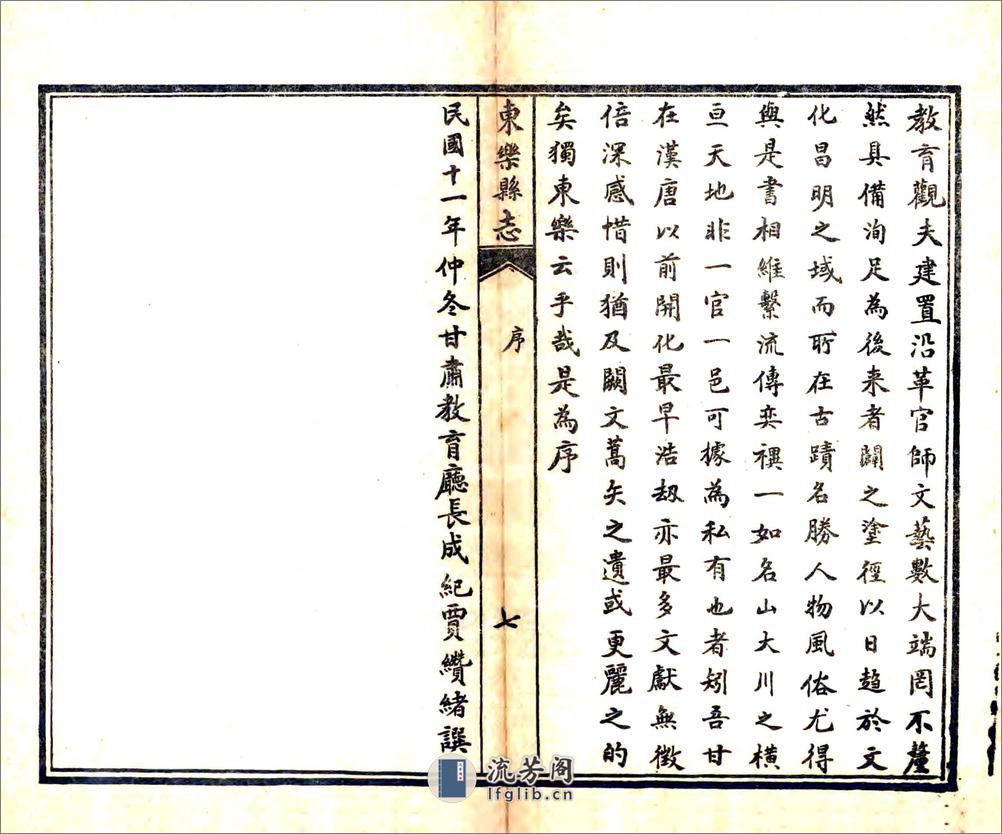 教育觀夫建置沿革官師文藝數大端罔不釐
然具備洵足為後来者闢之塗徑以日趋於文
化昌明之域而所在古蹟名勝人物風俗尤得
與是書相維繫流傳奕禩一如名山大川之横
亘天地非一官一邑可據為私有也者矧吾甘
在漢唐以前開化最早浩劫亦最多文獻無徵
倍深感惜則猶及闕文蒿矢之遺或更麗之的
矣獨東樂云乎哉是為序
東樂縣志
序
七
民國十一年仲冬甘肅教育廳長成紀賈纘緒譔
流芳阁
lfglib.cn